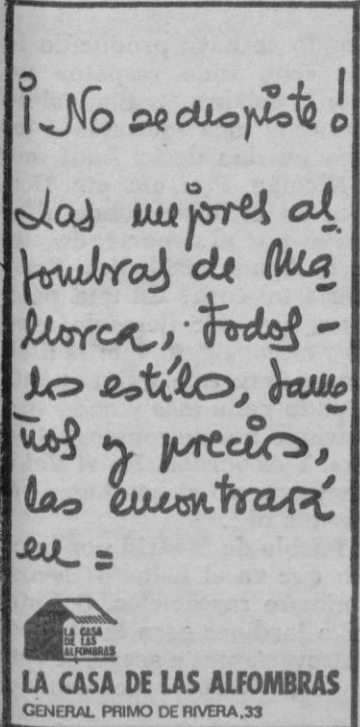 ¡No se despiste!
Las mejores al
fombras de Ma
llorca, todos
los estilos, tama
ños y precios,
las encontrará
en =
LA CASA
DE LAS
ALFOMBRAS
LA CASA DE LAS ALFOMBRAS
GENERAL PRIMO DE RIVERA,33